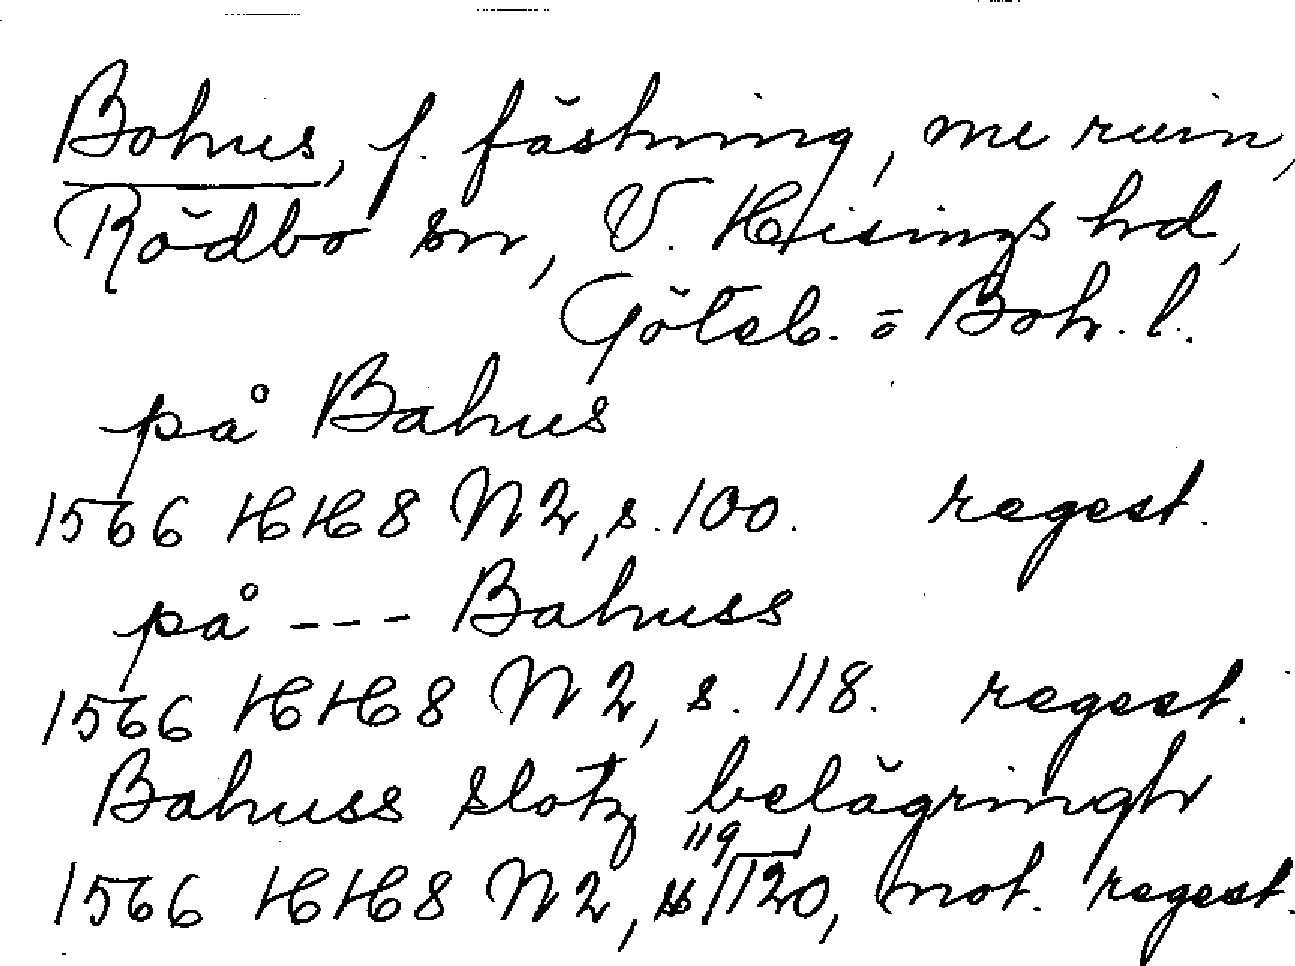 Bohus, f. fästning, nu ruin,
Rödbo sn, V. Hisings hd,
Göteb. o Boh. l.
på Bahus
1566 HH8 N 2, s. 100. regest.
på --- Bahuss
1566 HH8 N 2, s. 118. regest.
Bahuss slotz belägringh
119
1566 HH8 N 2, s 120, not. regest.